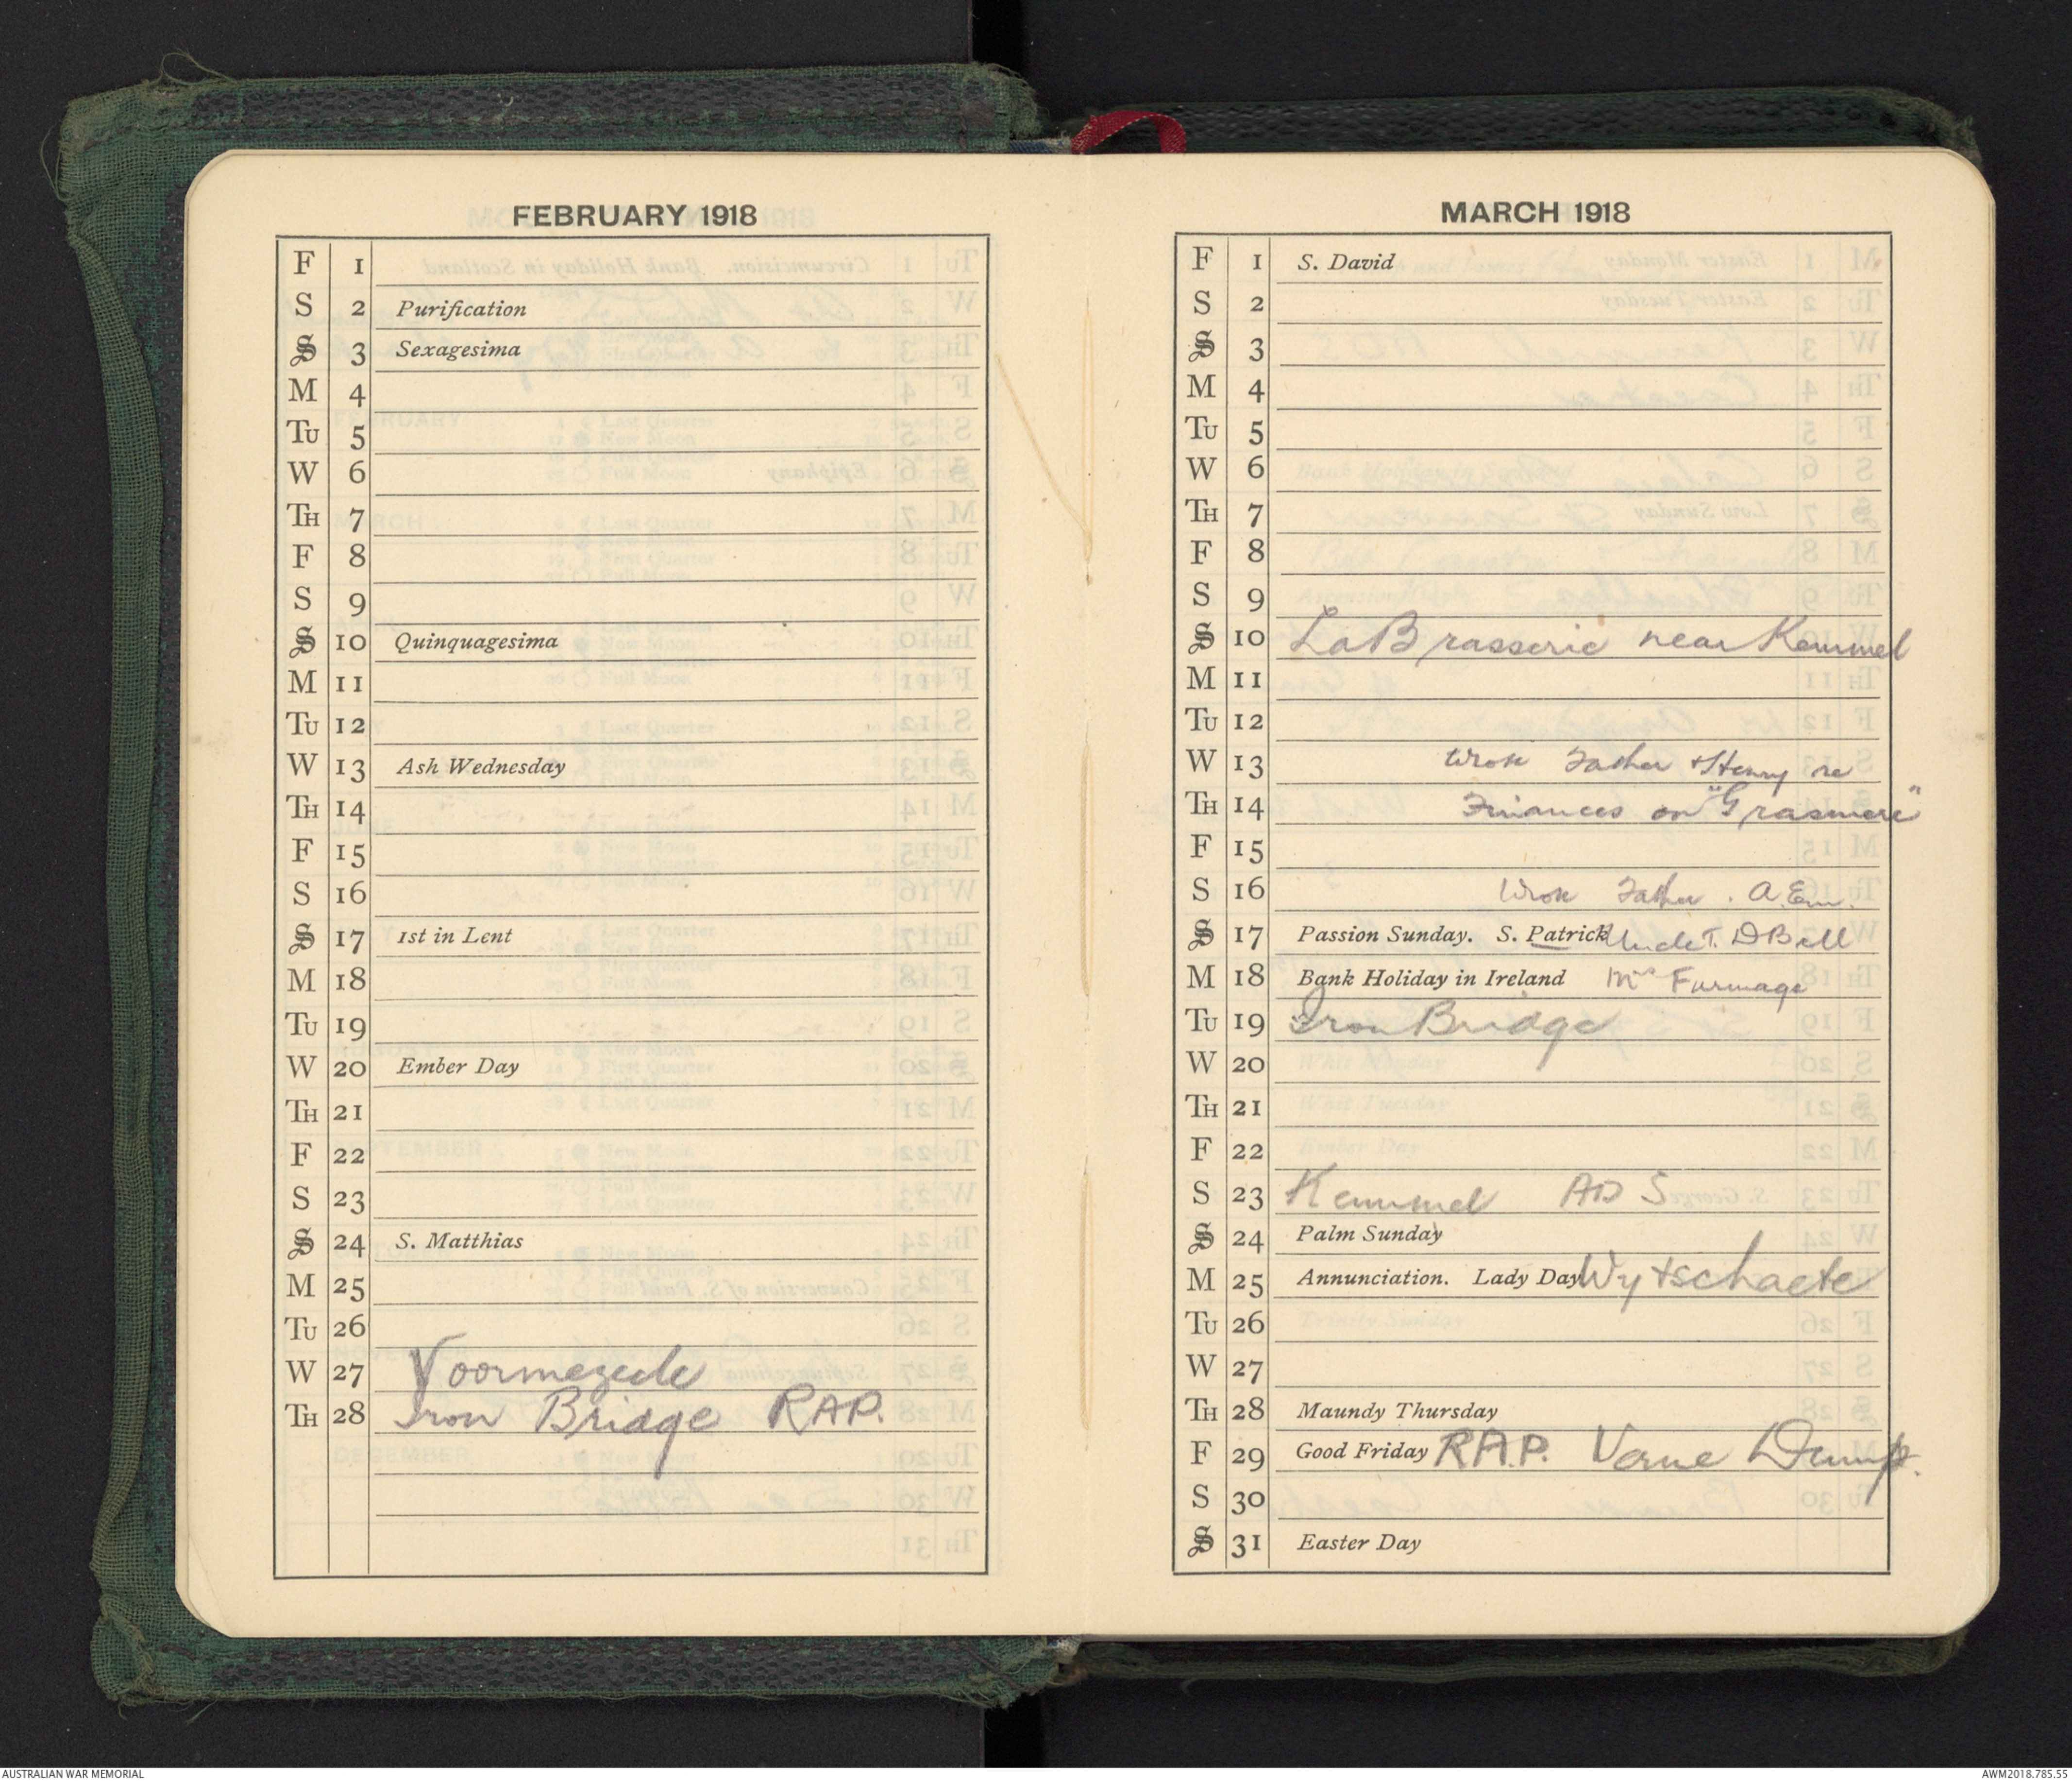 FEBRUARY 1918
F 1
S 2 Purification
S 3 Sexagesima
M 4
Tu 5
W 6
Th 7
F 8
S 9
S 10 Quinquagesima
M 11
Tu 12
W 13 Ash Wednesday
Th 14
F 15
S 16
S 17 1st in Lent
M 18
Tu 19
W 20 Ember Day
Th 21
F 22
S 23
S 24 S. Matthias
M 25
Tu 26
W 27 Voormezeele
Th 28 Iron Bridge RAP.
MARCH 1918
F 1 S. David
S 2
S 3
M 4
Tu 5
W 6
Th 7
F 8
S 9
S 10 La Brasserie near Kemmel
M 11
Tu 12
W 13 Wrote Father & Henry re
Th 14 Finances on "Grasmere"
F 15
S 16 Wrote Father. A. Em.
S 17 Passion Sunday. S. Patrick Uncle T. D Bell
M 18 Bank Holiday in Ireland Mrs Furmage
Tu 19 Iron Bridge
W 20
Th 21
F 22
S 23 Kemmel ADS
S 24 Palm Sunday
M 25 Annunciation. Lady Day Wytschaete
Tu 26
W 27
Th 28 Maundy Thursday
F 29 Good Friday R.A.P. Verne Dump.
S 30
S 31 Easter Day
AUSTRALIAN WAR MEMORIAL
AWM2018.785.55